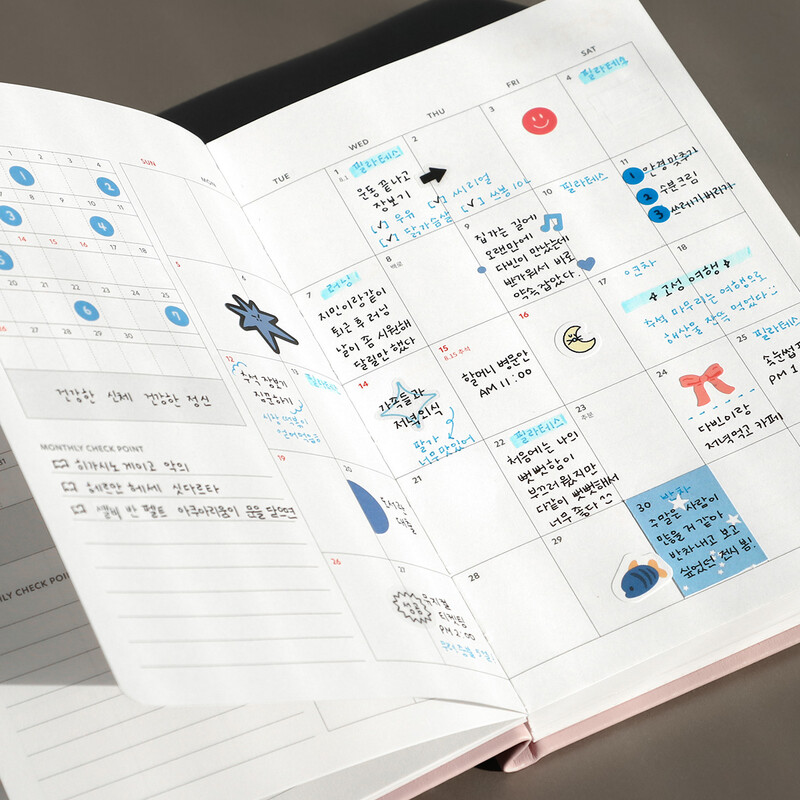 1 2 3 4
1 2
3 4
14 15 16 17 18
5
6 7
27 28 29 30
건강한 신체 건강한 정신
MONTHLY CHECK POINT
히가시노 게이고 악의
헤르만 헤세 싯다르타
셸비 반 펠트 아쿠아리움이 문을 닫으면
31
SUN MON TUE WED THU FRI SAT
1
8.1
필라테스
운동 끝나고
장보기
2
우유 씨리얼
닭가슴살 쓰봉 10L
3
4
필라테스
5
6
7
러닝
지민이랑같이
퇴근 후 러닝
날이 좀 시원해
달릴만 했다
8
백로
9
집가는 길에
오랜만에
다빈이 만났는데
반가워서 바로
약속잡았다.
10
필라테스
11
1 안경맞추기
2 수분크림
3 쓰레기버리기
12
추석 장보기
13
필라테스
14
가족들과
저녁외식
15
8.15 추석
할머니 병문안
AM 11:00
16
17
연차
18
고성 여행
추석 마무리는 여행으로
해산물 잔뜩 먹었다
19
20
21
22
필라테스
처음에는 나의
뻣뻣함이
부끄러웠지만
다같이 뻣뻣해서
너무 좋다
23
추분
24
다빈이랑
저녁먹고 카페
25
필라테스
PM 1
26
27
성공
뮤지컬
티켓팅
PM 2:00
28
29
30
반차
주말은 사람이
많을 거 같아
반차내고 보고
싶었던 전시 봄!